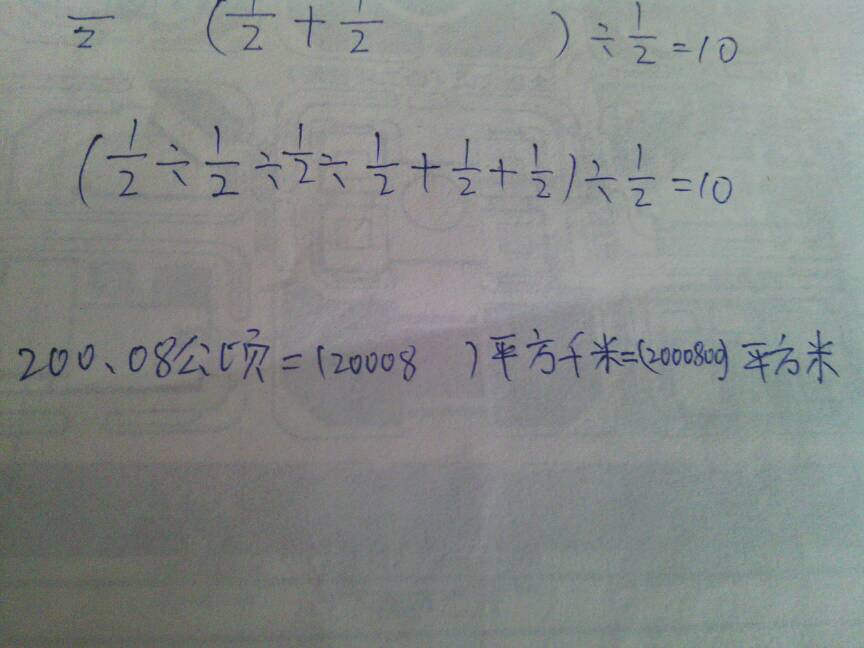 1/2 (1/2 + 1/2 ) ÷ 1/2 = 10
(1/2 ÷ 1/2 ÷ 1/2 ÷ 1/2 + 1/2 + 1/2) ÷ 1/2 = 10
200.08公顷=(20008 )平方千米=(2000800)平方米